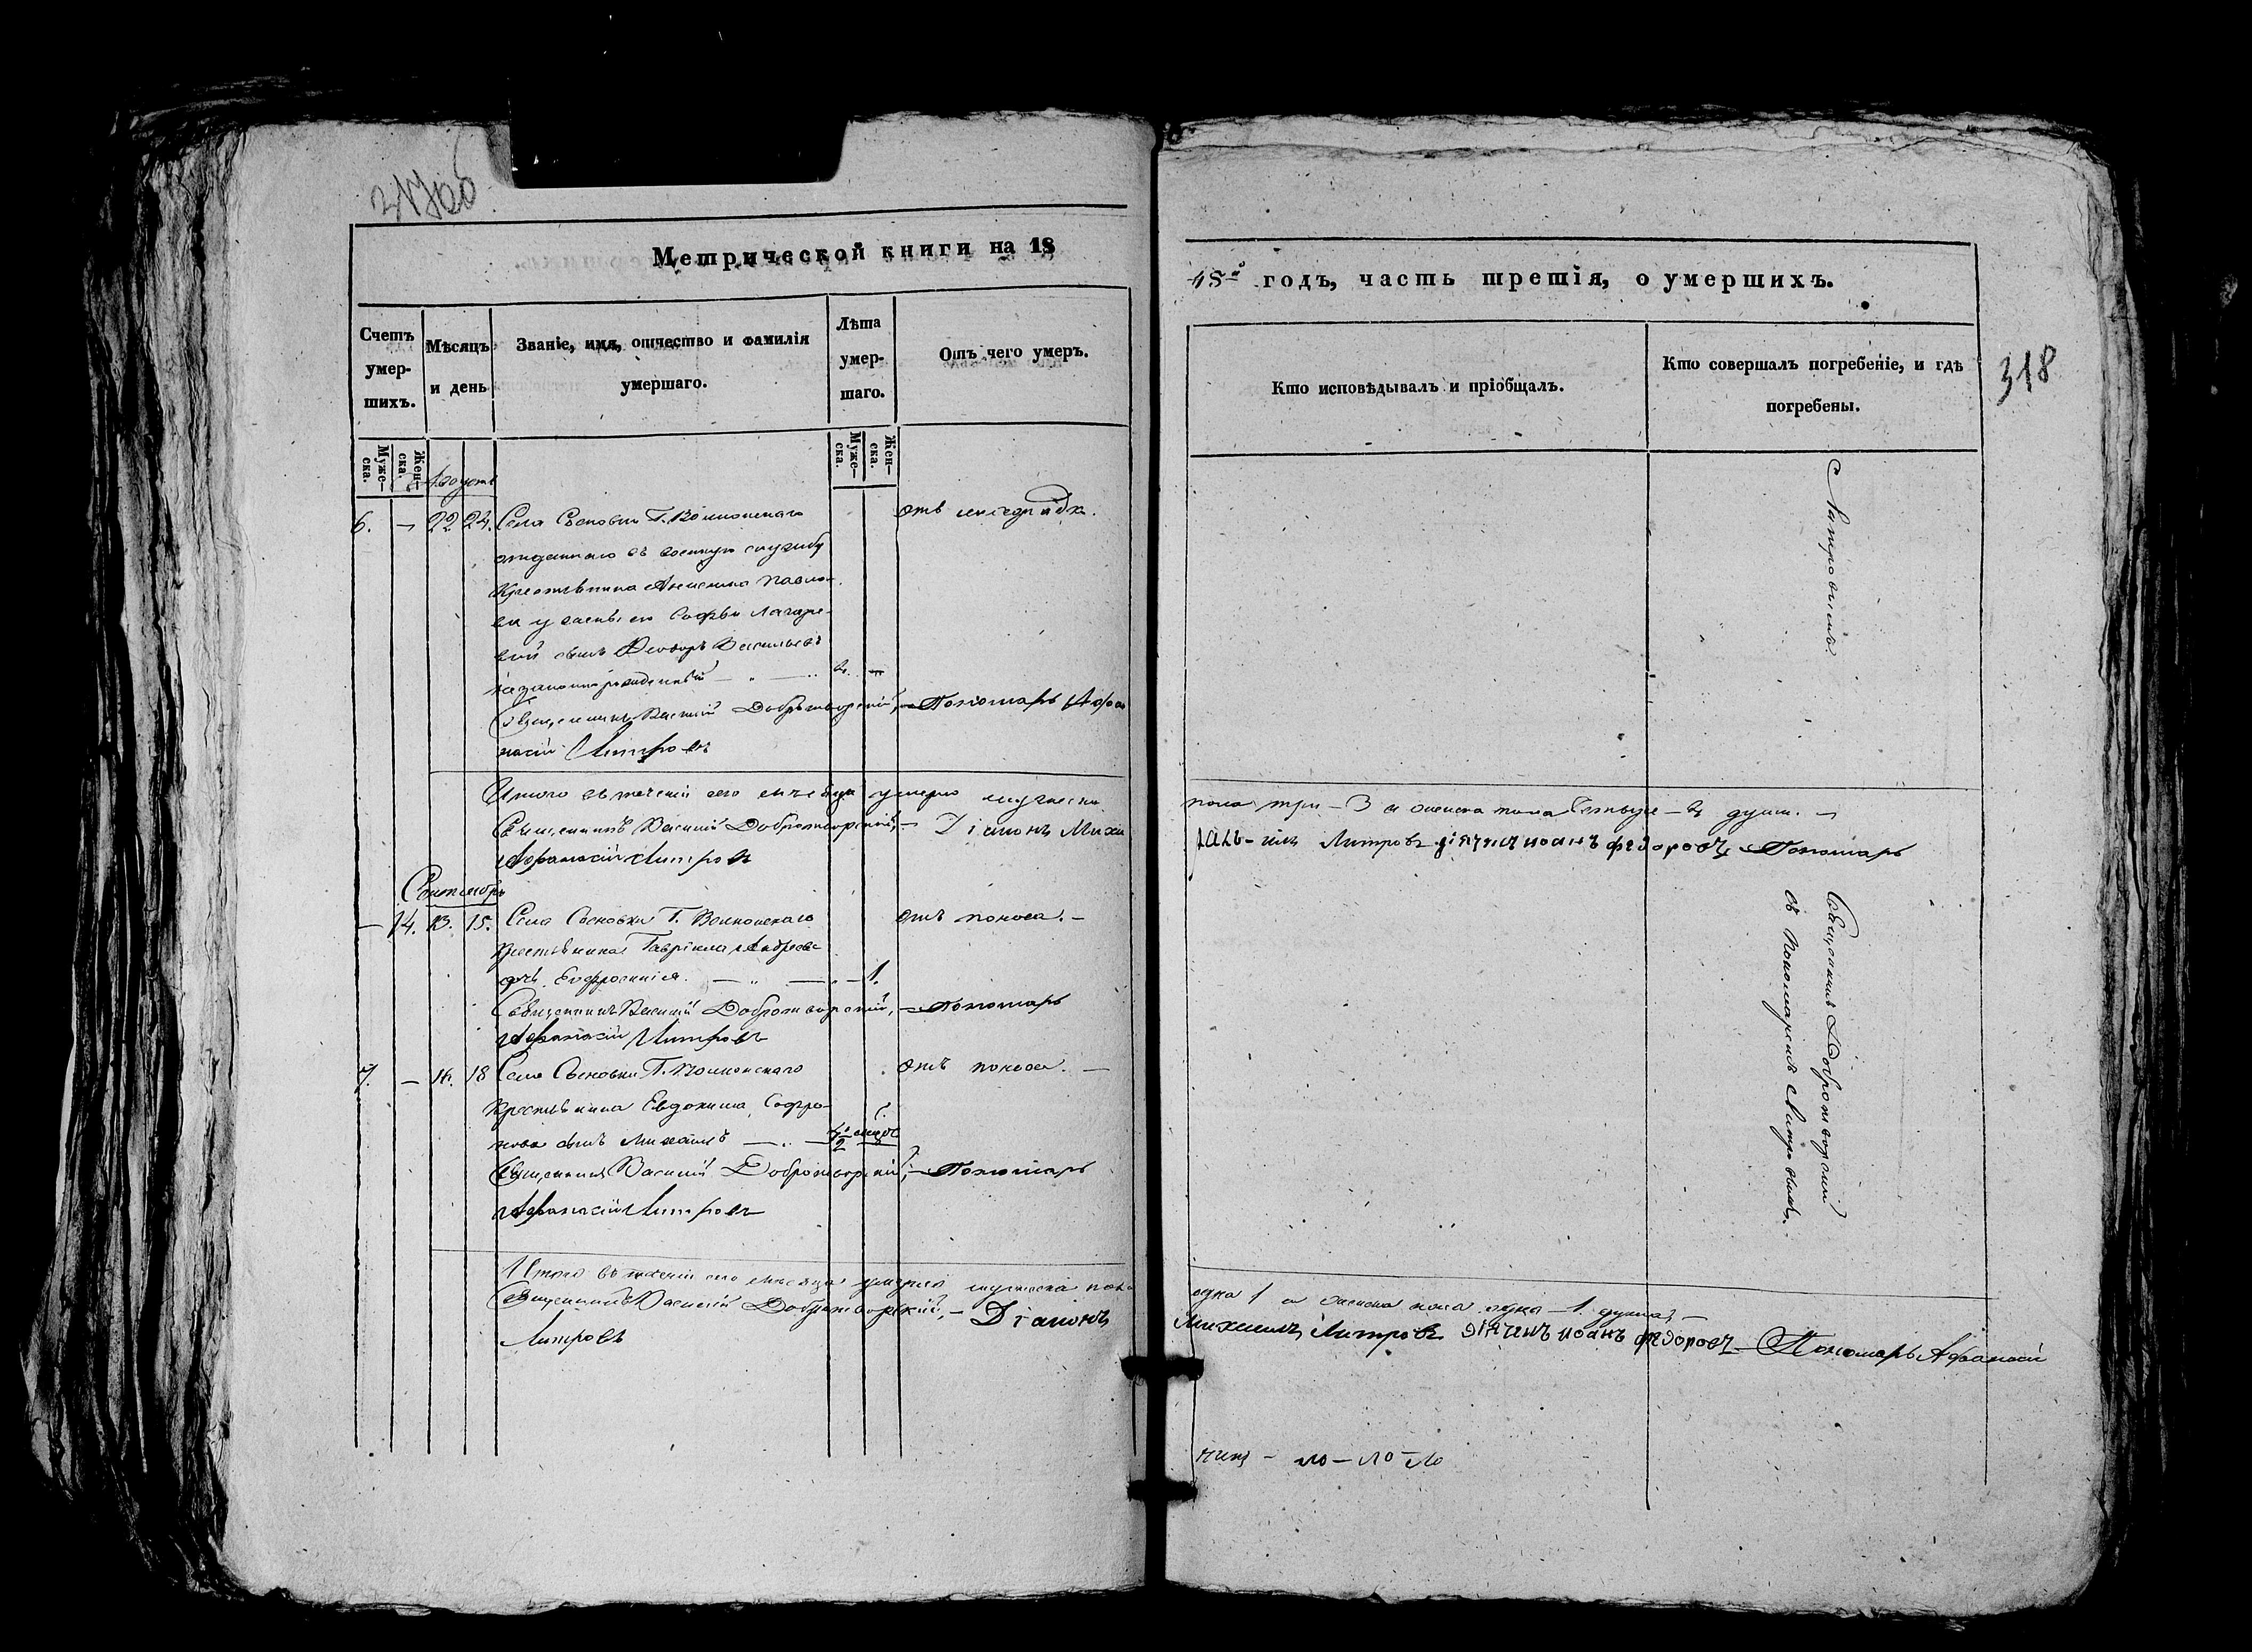 317об
Метрической книги на 18
48й годъ, часть третія, о умершихъ.
318
Счетъ умер-шихъ.
Мѣсяцъ и день
Званіе, имя, отчество и фамилія умершаго.
Лѣта умер-шаго.
Отъ чего умеръ.
Кто исповѣдывалъ и пріобщалъ.
Кто совершалъ погребеніе, и гдѣ погребены.
Муже-ска.
Жен-ска.
Муже-ска.
Жен-ска.
Августъ
6. — 22 24. Села Сосновки Г. Волконскаго отъ
отданнаго въ военную службу
Крестьянина Павло-
ва у жены его Софьи Лазаре-
вой сынъ Ѳеодоръ Васильевъ
незаконнорожденный — „ —
Священникъ Василій Добротворскій, — Пономарь Афа
насій Митровъ
Митровымъ.
Итого въ теченіи сего мѣсяца умерло мужеска
пола три — 3 а женска пола четыре — 4 души. —
Священникъ Василій Добротворскій, — Діаконъ Миха
илъ Митровъ дячикъ иоанъ федоровъ, Пономарь
Афанасій Митровъ
Сентябрь
— 14. 13. 15. Села Сосновки Г. Волконскаго отъ поноса. —
Крестьянина Гавріила Андреева
дочь Евфросинія. — „ — 1.
Священникъ Василій Добротворскій, — Пономарь
Афанасій Митровъ
Священникъ Добротворскій
съ Пономаремъ Митровымъ.
7. — 16. 18 Села Сосновки Г. Волконскаго отъ поноса. —
Крестьянина Евдокима Софро-
нова сынъ Михаилъ — „ —
Священникъ Василій Добротворскій, — Пономарь
Афанасій Митровъ
Итого въ теченіи сего мѣсяца умерло мужеска пола
одна 1 а женска пола одна — 1. душа, —
Священникъ Василій Добротворскій, — Діаконъ
Михаилъ Митровъ дячикъ иоанъ федоровъ — Пономарь Афанасій
Митровъ